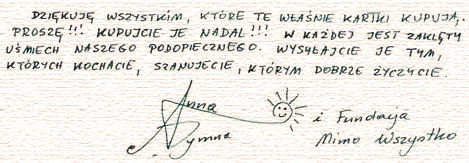 DZIĘKUJĘ WSZYSTKIM, KTÓRE TE WŁAŚNIE KARTKI KUPUJĄ.
PROSZĘ!!! KUPUJCIE JE NADAL!!! W KAŻDEJ JEST ZAKLĘTY
UŚMIECH NASZEGO PODOPIECZNEGO. WYSYŁAJCIE JE TYM,
KTÓRYCH KOCHACIE, SZANUJECIE, KTÓRYM DOBRZE ŻYCZYCIE.
Anna
Dymna
i Fundacja
Mimo Wszystko